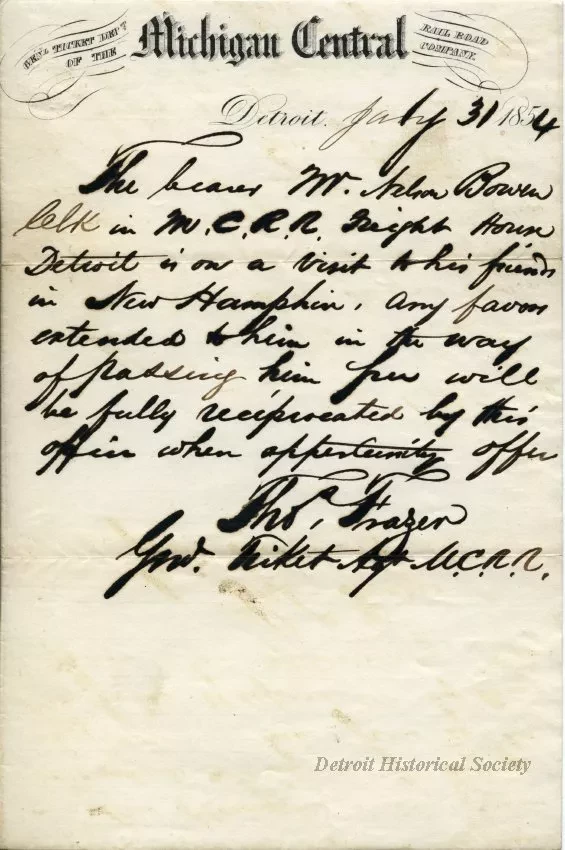 GEN'L TICKET DEP'T
OF THE
Michigan Central
RAIL ROAD
COMPANY.
Detroit, July 31 1854
The bearer Mr. Nelson Bowen
Clk in M.C.R.R. Freight House
Detroit is on a visit to his friends
in New Hampshire. Any favors
extended to him in the way
of passing him free will
be fully reciprocated by this
office when opportunity offer
Thos. Frazer
Genl. Ticket Agt M.C.R.R.
Detroit Historical Society